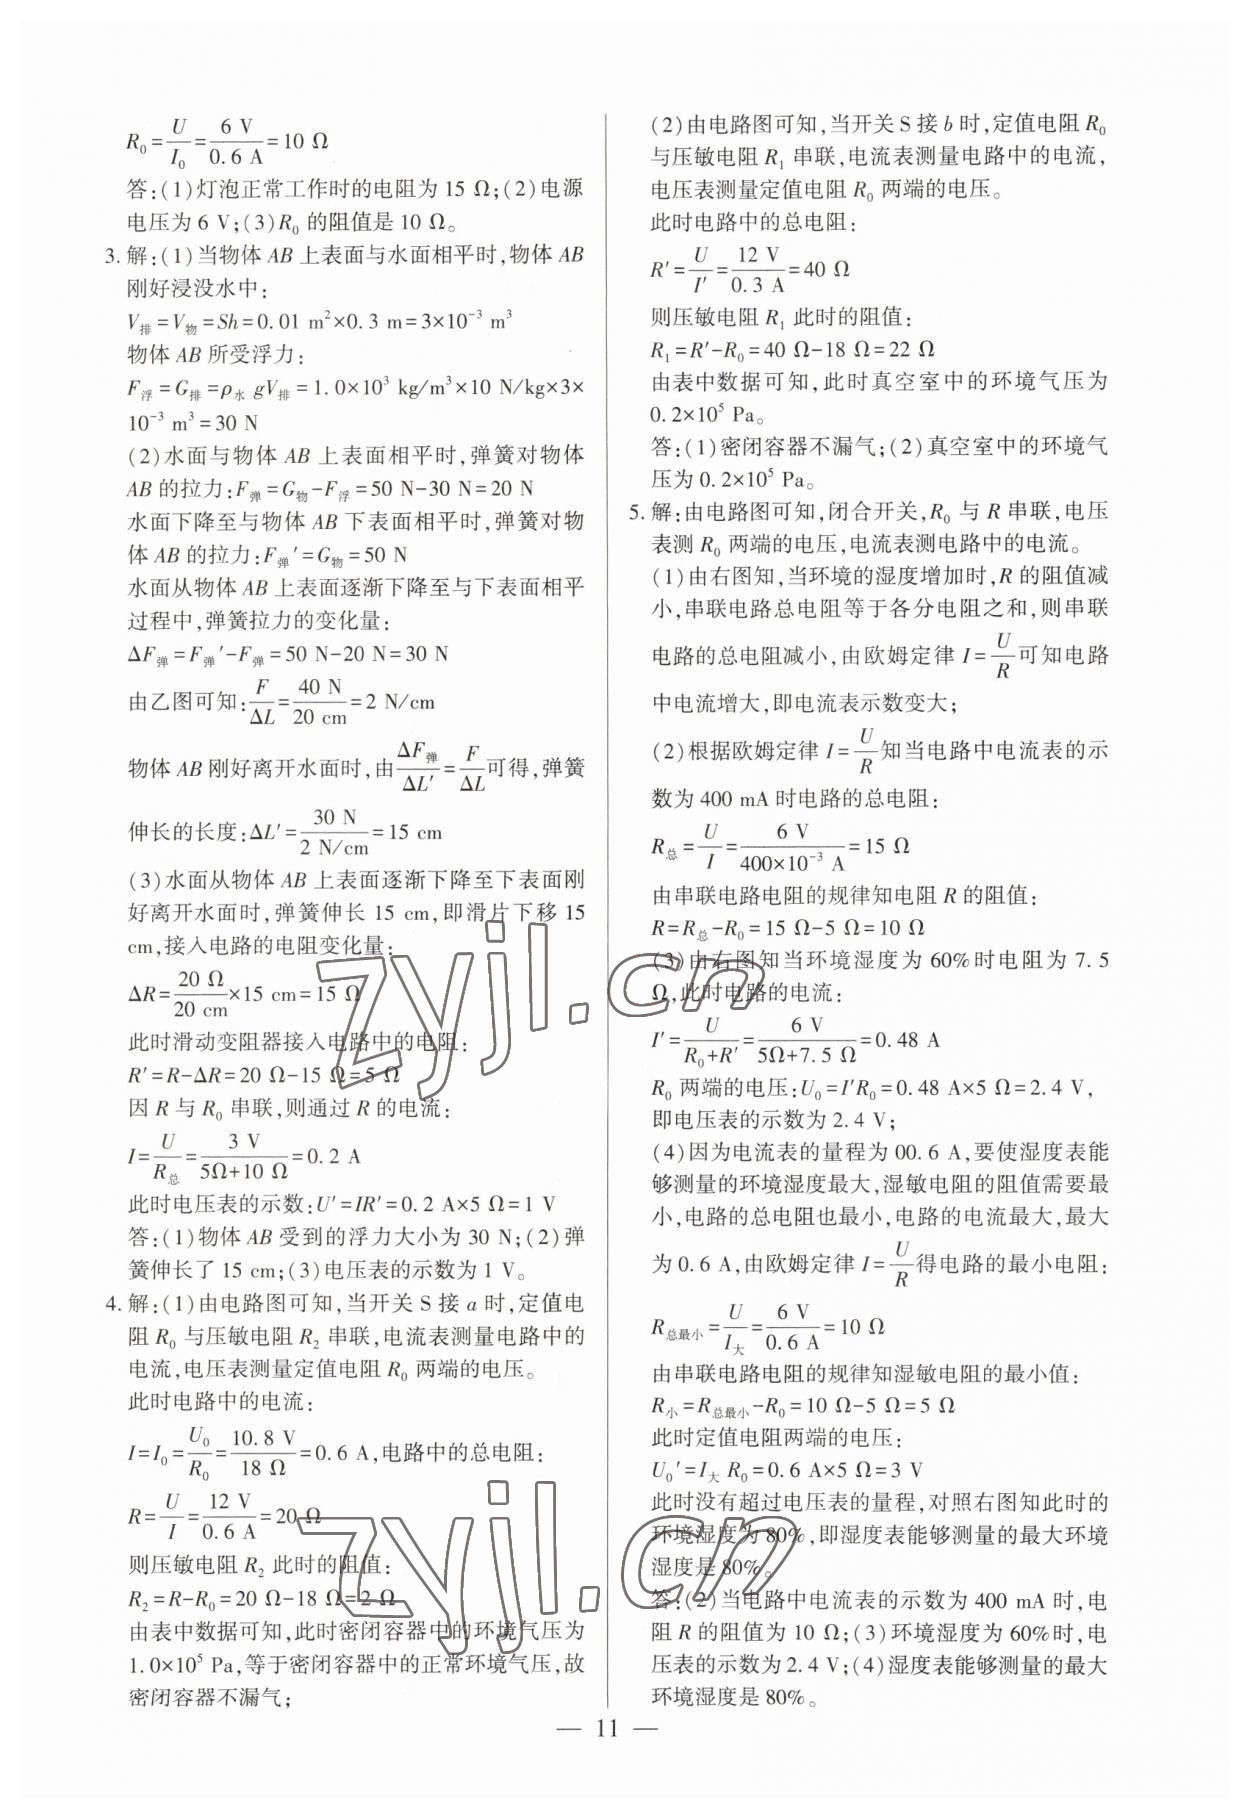 R₀=U/I₀=6 V/0.6 A=10 Ω
答:(1)灯泡正常工作时的电阻为 15 Ω;(2)电源
电压为 6 V;(3)R₀ 的阻值是 10 Ω。
3. 解:(1)当物体 AB 上表面与水面相平时,物体 AB
刚好浸没水中:
V排=V物=Sh=0.01 m²×0.3 m=3×10⁻³ m³
物体 AB 所受浮力:
F浮=G排=ρ水 gV排=1.0×10³ kg/m³×10 N/kg×3×
10⁻³ m³=30 N
(2)水面与物体 AB 上表面相平时,弹簧对物体
AB 的拉力:F弹=G物-F浮=50 N-30 N=20 N
水面下降至与物体 AB 下表面相平时,弹簧对物
体 AB 的拉力:F弹′=G物=50 N
水面从物体 AB 上表面逐渐下降至与下表面相平
过程中,弹簧拉力的变化量:
ΔF弹=F弹′-F弹=50 N-20 N=30 N
由乙图可知:F/ΔL=40 N/20 cm=2 N/cm
物体 AB 刚好离开水面时,由ΔF弹/ΔL′=F/ΔL可得,弹簧
伸长的长度:ΔL′=30 N/2 N/cm=15 cm
(3)水面从物体 AB 上表面逐渐下降至下表面刚
好离开水面时,弹簧伸长 15 cm,即滑片下移 15
cm,接入电路的电阻变化量:
ΔR=20 Ω/20 cm×15 cm=15 Ω
此时滑动变阻器接入电路中的电阻:
R′=R-ΔR=20 Ω-15 Ω=5 Ω
因 R 与 R₀ 串联,则通过 R 的电流:
I=U/R总=3 V/5Ω+10 Ω=0.2 A
此时电压表的示数:U′=IR′=0.2 A×5 Ω=1 V
答:(1)物体 AB 受到的浮力大小为 30 N;(2)弹
簧伸长了 15 cm;(3)电压表的示数为 1 V。
4. 解:(1)由电路图可知,当开关 S 接 a 时,定值电
阻 R₀ 与压敏电阻 R₂ 串联,电流表测量电路中的
电流,电压表测量定值电阻 R₀ 两端的电压。
此时电路中的电流:
I=I₀=U₀/R₀=10.8 V/18 Ω=0.6 A,电路中的总电阻:
R=U/I=12 V/0.6 A=20 Ω
则压敏电阻 R₂ 此时的阻值:
R₂=R-R₀=20 Ω-18 Ω=2 Ω
由表中数据可知,此时密闭容器中的环境气压为
1.0×10⁵ Pa,等于密闭容器中的正常环境气压,故
密闭容器不漏气;
(2)由电路图可知,当开关 S 接 b 时,定值电阻 R₀
与压敏电阻 R₁ 串联,电流表测量电路中的电流,
电压表测量定值电阻 R₀ 两端的电压。
此时电路中的总电阻:
R′=U/I′=12 V/0.3 A=40 Ω
则压敏电阻 R₁ 此时的阻值:
R₁=R′-R₀=40 Ω-18 Ω=22 Ω
由表中数据可知,此时真空室中的环境气压为
0.2×10⁵ Pa。
答:(1)密闭容器不漏气;(2)真空室中的环境气
压为 0.2×10⁵ Pa。
5. 解:由电路图可知,闭合开关,R₀ 与 R 串联,电压
表测 R₀ 两端的电压,电流表测电路中的电流。
(1)由右图知,当环境的湿度增加时,R 的阻值减
小,串联电路总电阻等于各分电阻之和,则串联
电路的总电阻减小,由欧姆定律 I=U/R可知电路
中电流增大,即电流表示数变大;
(2)根据欧姆定律 I=U/R知当电路中电流表的示
数为 400 mA 时电路的总电阻:
R总=U/I=6 V/400×10⁻³ A=15 Ω
由串联电路电阻的规律知电阻 R 的阻值:
R=R总-R₀=15 Ω-5 Ω=10 Ω
(3)由右图知当环境湿度为 60%时电阻为 7.5
Ω,此时电路的电流:
I′=U/R₀+R′=6 V/5Ω+7.5 Ω=0.48 A
R₀ 两端的电压:U₀=I′R₀=0.48 A×5 Ω=2.4 V,
即电压表的示数为 2.4 V;
(4)因为电流表的量程为 00.6 A,要使湿度表能
够测量的环境湿度最大,湿敏电阻的阻值需要最
小,电路的总电阻也最小,电路的电流最大,最大
为 0.6 A,由欧姆定律 I=U/R得电路的最小电阻:
R总最小=U/I大=6 V/0.6 A=10 Ω
由串联电路电阻的规律知湿敏电阻的最小值:
R小=R总最小-R₀=10 Ω-5 Ω=5 Ω
此时定值电阻两端的电压:
U₀′=I大 R₀=0.6 A×5 Ω=3 V
此时没有超过电压表的量程,对照右图知此时的
环境湿度为 80%,即湿度表能够测量的最大环境
湿度是 80%。
答:(2)当电路中电流表的示数为 400 mA 时,电
阻 R 的阻值为 10 Ω;(3)环境湿度为 60%时,电
压表的示数为 2.4 V;(4)湿度表能够测量的最大
环境湿度是 80%。
— 11 —
zyjl.cn
zyjl.cn